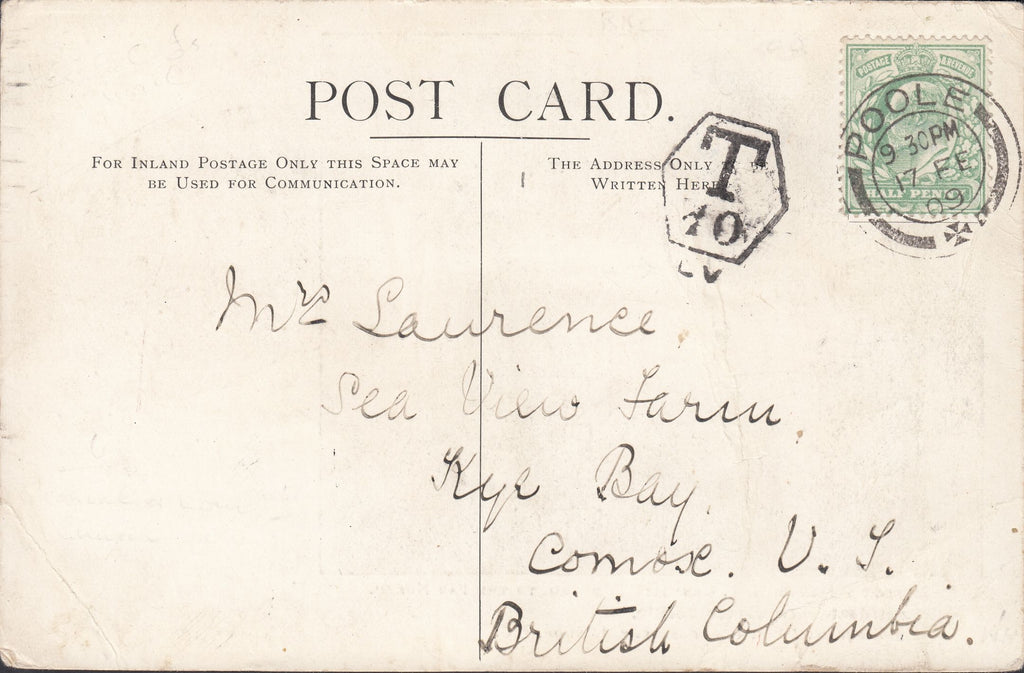 POST CARD.
FOR INLAND POSTAGE ONLY THIS SPACE MAY
BE USED FOR COMMUNICATION.
THE ADDRESS ONLY
WRITTEN HERE
T
10
POSTAGE & REVENUE
HALF PENNY
POOLE
9 30PM
17 FE
09
Mrs Laurence
Sea View Farm
Kye Bay
Comox. V. I.
British Columbia.